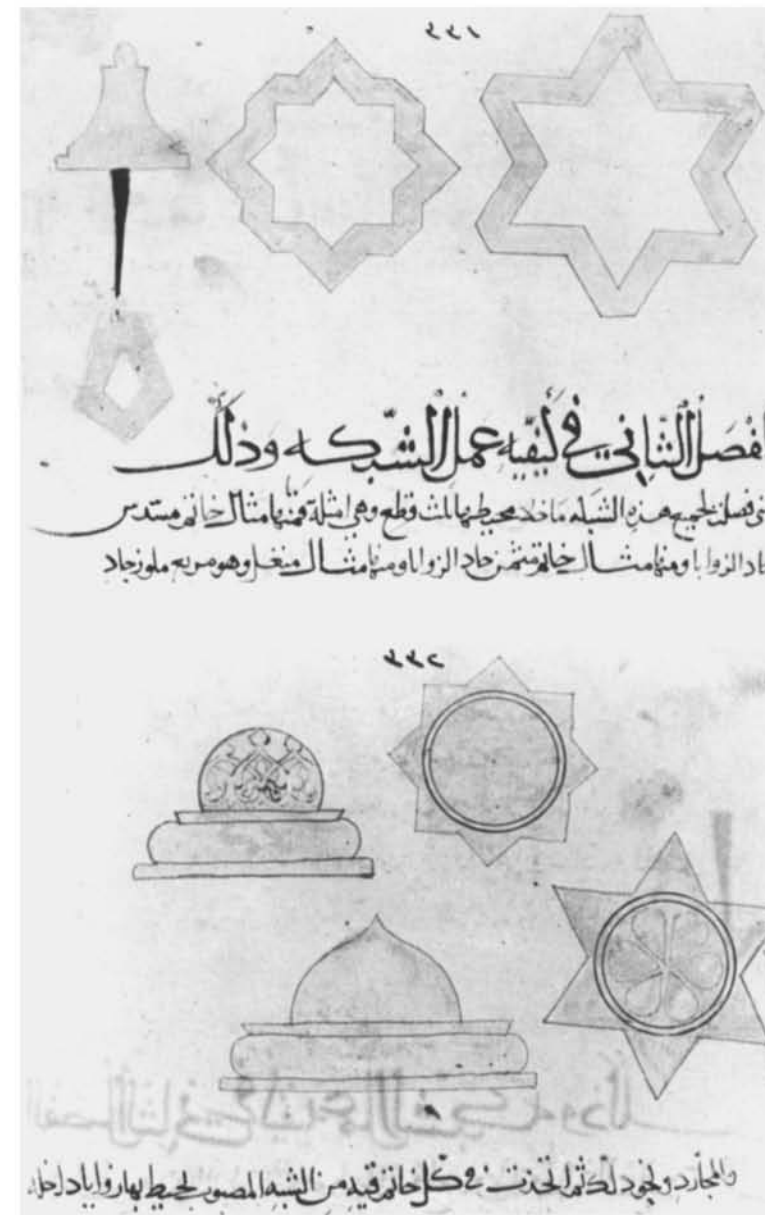 ٣٣١
لفصل الثاني في كيفيه عمل الشبكه وذلك
فصلت لجميع هذه الشبكه ما خلا محيطها ثلث قطع وهي امثلة فمنها مثال خاتم مسدس
حاد الزوايا ومنها مثال خاتم مثمن حاد الزوايا ومنها مثال منغل وهو مربع ملوز حاد
٣٣٢
والمجارد ونحو ذلك ثم اتخذت في كل خاتم قيد من الشبه المصبوب يحيط بها زوايا داخله